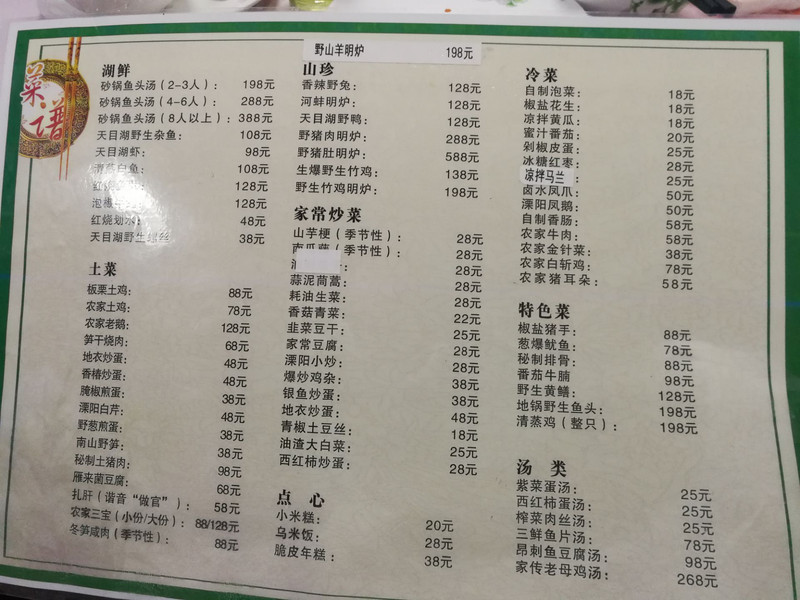 菜谱
湖鲜
砂锅鱼头汤（2-3人）： 198元
砂锅鱼头汤（4-6人）： 288元
砂锅鱼头汤（8人以上）： 388元
天目湖野生杂鱼： 108元
天目湖虾： 98元
白鱼： 108元
红烧 128元
泡椒 128元
红烧划水： 48元
天目湖野生螺丝 38元
土菜
板栗土鸡： 88元
农家土鸡： 78元
农家老鹅： 128元
笋干烧肉： 68元
地衣炒蛋： 48元
香椿炒蛋： 48元
腌椒煎蛋： 38元
溧阳白芹： 48元
野葱煎蛋： 38元
南山野笋： 38元
秘制土猪肉： 98元
雁来菌豆腐： 68元
扎肝（谐音“做官”）： 58元
农家三宝（小份/大份）： 88/128元
冬笋咸肉（季节性）： 88元
野山羊明炉 198元
山珍
香辣野兔： 128元
河蚌明炉： 128元
天目湖野鸭： 128元
野猪肉明炉： 288元
野猪肚明炉： 588元
生爆野生竹鸡： 138元
野生竹鸡明炉： 198元
家常炒菜
山芋梗（季节性）： 28元
南瓜藤（季节性）： 28元
28元
蒜泥茼蒿： 28元
耗油生菜： 28元
香菇青菜： 22元
韭菜豆干： 25元
家常豆腐： 28元
溧阳小炒： 28元
爆炒鸡杂： 38元
银鱼炒蛋： 38元
地衣炒蛋： 48元
青椒土豆丝： 18元
油渣大白菜： 25元
西红柿炒蛋： 28元
点心
小米糕： 20元
乌米饭： 28元
脆皮年糕： 38元
冷菜
自制泡菜： 18元
椒盐花生： 18元
凉拌黄瓜： 18元
蜜汁番茄： 20元
剁椒皮蛋： 25元
冰糖红枣： 28元
凉拌马兰： 25元
卤水凤爪： 50元
溧阳凤鹅： 50元
自制香肠： 58元
农家牛肉： 58元
农家金针菜： 38元
农家白斩鸡： 78元
农家猪耳朵： 58元
特色菜
椒盐猪手： 88元
葱爆鱿鱼： 78元
秘制排骨： 88元
番茄牛腩： 98元
野生黄鳝： 128元
地锅野生鱼头： 198元
清蒸鸡（整只）： 198元
汤类
紫菜蛋汤： 25元
西红柿蛋汤： 25元
榨菜肉丝汤： 25元
三鲜鱼片汤： 78元
昂刺鱼豆腐汤： 98元
家传老母鸡汤： 268元